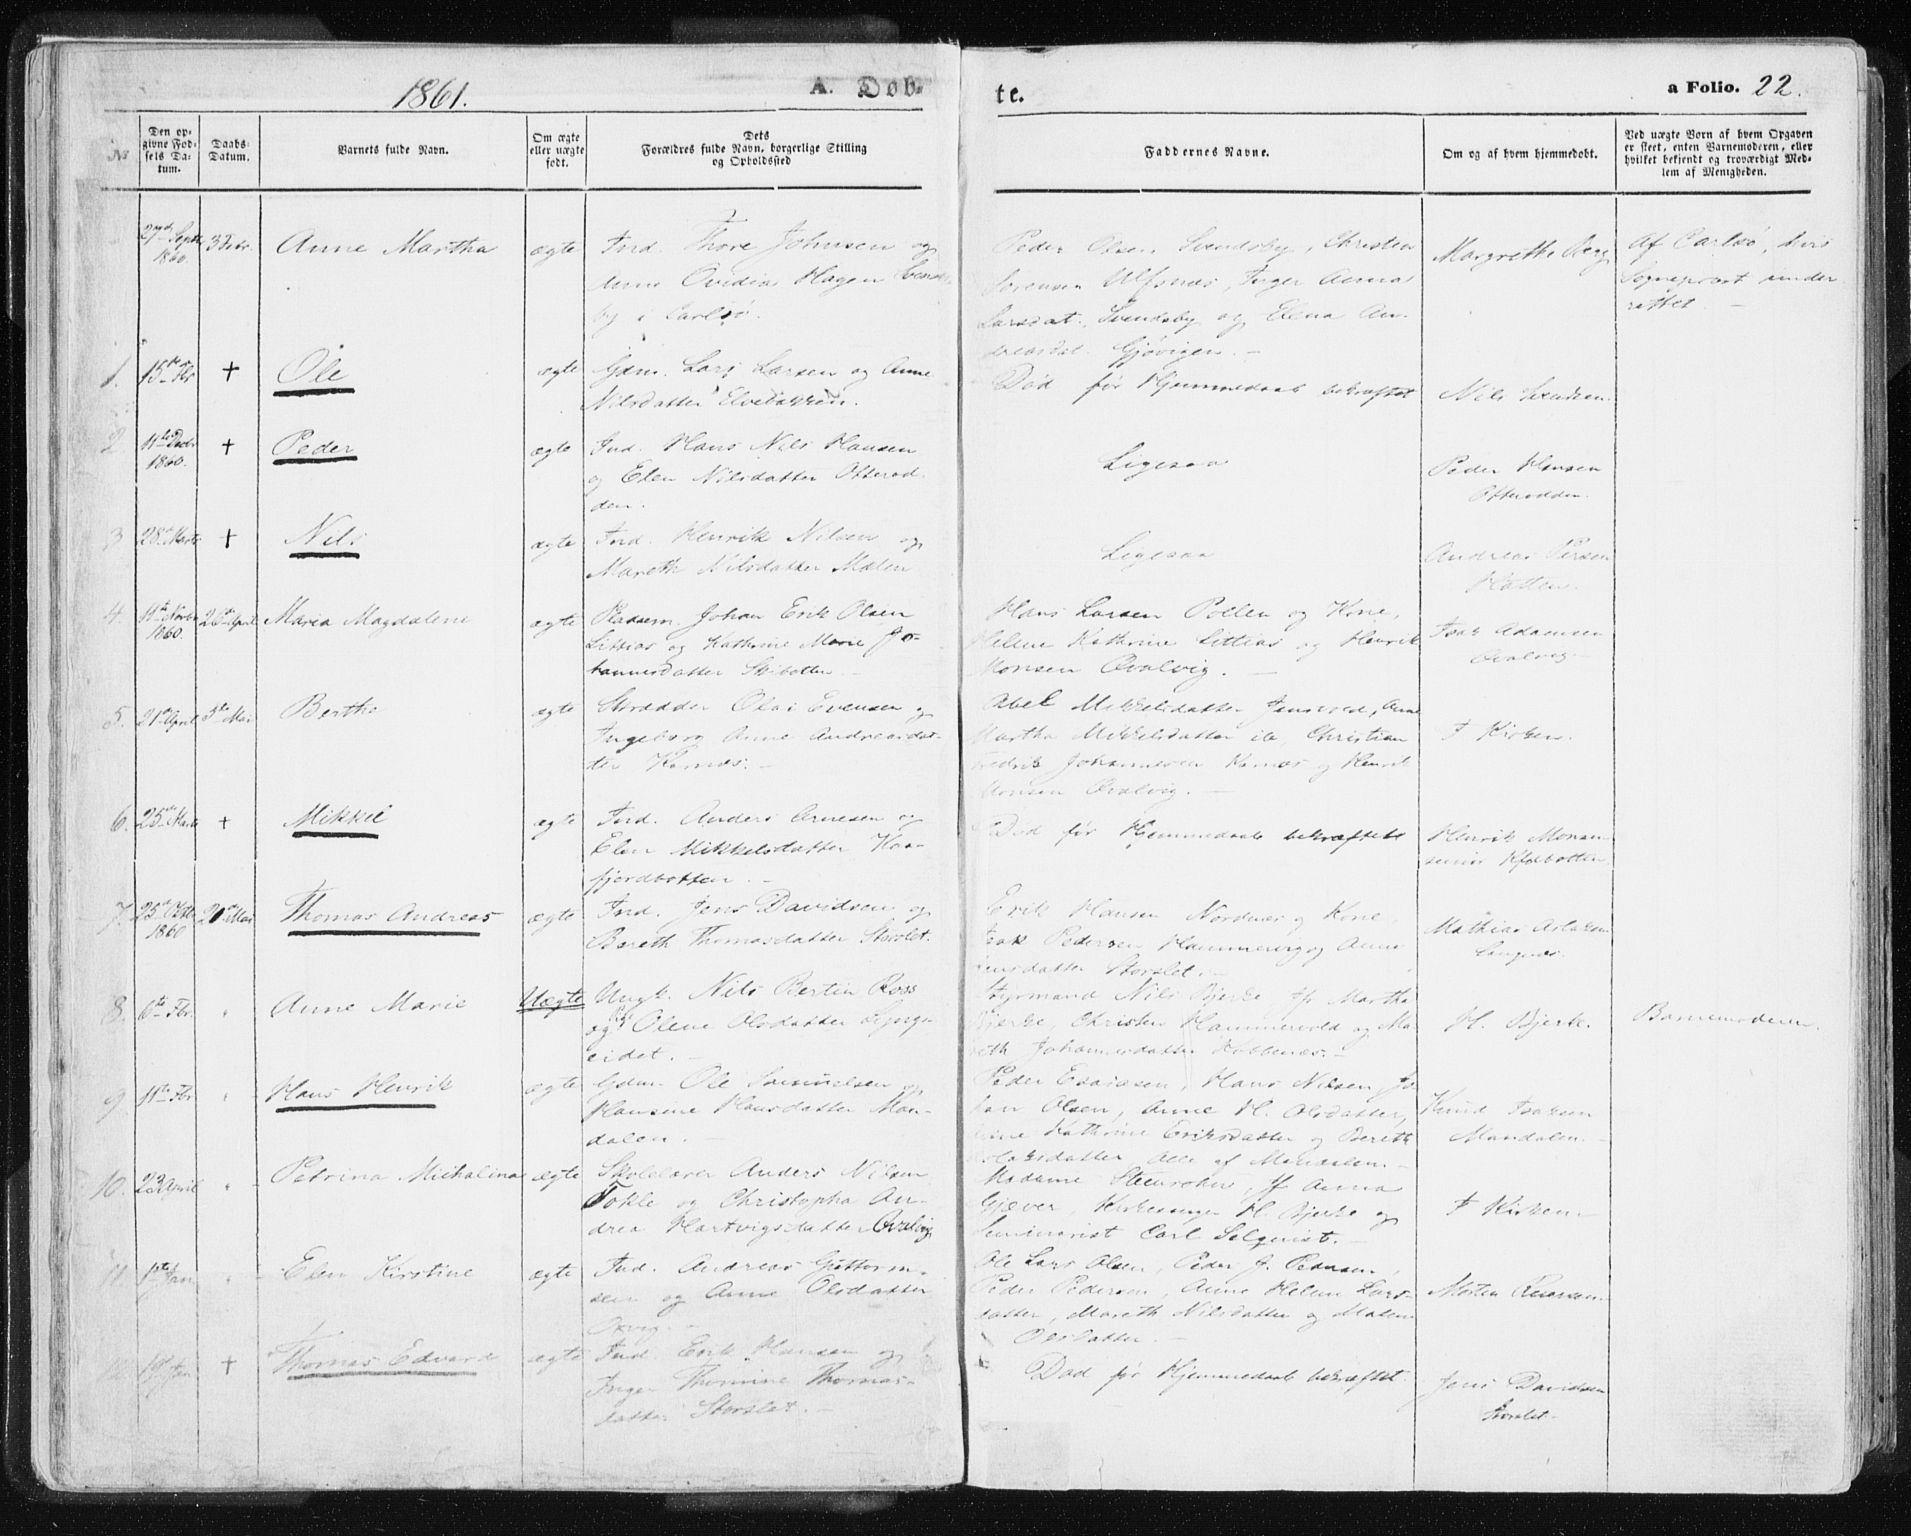 1861.
A. Døb-
te.
a Folio. 22.
№
Den op-
givne Fød-
sels Da-
tum.
Daabs-
Datum.
Barnets fulde Navn.
Om ægte
eller uægte
født.
Dets
Forældres fulde Navn, borgerlige Stilling
og Opholdssted
Faddernes Navne.
Om og af hvem hjemmedøbt.
Ved uægte Børn af hvem Opgaven
er skeet, enten Barnemoderen, eller
hvilket bekjendt og troværdigt Med-
lem af Menigheden.
27de Septr
1860.
3 Febr.
Anne Martha
ægte
Ind. Thore Johnsen og
Anne Ovidia Hagen
by i Carlsö.
Peder Olsen Svendsby, Christen
Sörensen Ulfsnes, Inger Anna
Larsdat. Svendsby og Elena An-
dreasdat. Gjövigen. -
Margrethe Berg
Af Carlsö, hvis
Sogneprest under
rettet -
1.
15de Fbr
†
Ole
ægte
Gdm. Lars Larsen og Anne
Nilsdatter Elvebakken.
Död før Hjemmedaab bekræftet
Nils
2
11te Decbr
1860.
†
Peder
ægte
Ind. Hans Nils Hansen
og Elen Nilsdatter Otterod-
den.
Ligesaa
Peder Hansen
Otterodden.
3
28de Marts
†
Nils
ægte
Ind. Henrik Nilsen og
Mareth Nilsdatter Malen
Ligesaa
Andreas Persen
Hatten.
4.
11te Novbr
1860.
26de April
Maria Magdalene
ægte
Pladsm. Johan Erik Olsen
Littias og Kathrine Marie Jo-
hannesdatter Skibotten -
Hans Larsen Pollen og Kone,
Helene Kathrine Littias og Henrik
Monsen Qvalvig. -
Isak Adamsen
Qvalvig. -
5.
21de April
5te Mai
Berthe
ægte
Skrædder Olai Evensen og
Ingeborg Anne Andreasdat-
ter Kornes. -
Abel Mikkelsdatter Jensvold, Anne
Martha Mikkelsdatter ib, Christian
Fredrik Johannesen Kornes og Henrik
Monsen Qvalvig. -
I Kirken.
6.
25de Marts
†
Mikkel
ægte
Ind. Anders Arnesen og
Elen Mikkelsdatter Kaa-
fjordbotten. -
Död før Hjemmedaab bekræftet
Henrik Monsen
senior Kfjbotten
7.
25de Oktbr
1860
20de Mai
Thomas Andreas
ægte
Ind. Jens Davidsen og
Bereth Thomasdatter Storslet.
Erik Hansen Nordnæs og Kone,
Isak Pedersen Hammervig og Anne
Jensdatter Storslet. -
Mathias Aslaksen
Langnæs.
8.
6te Fbr.
"
Anne Marie
Uægte
Ungk. Nils Bertin Ross
og Pige Olene Olsdatter Lyngs-
eidet. -
Styrmand Nils Bjerke, Jfr Martha
Bjerke, Christen Hammervold og Ma-
reth Johannesdatter Kobbenes. -
H. Bjerke.
Barnemoderen.
9
11te Fbr.
"
Hans Henrik
ægte
Gdm. Ole Samuelsen og
Hansine Hansdatter Man-
dalen. -
Peder Esaiasen, Hans Nilsen, Jo-
han Olsen, Anne H. Olsdatter,
Kathrine Eriksdatter og Bereth
Alle af Mandalen. -
Knud Isaksen
Mandalen. -
10.
23de April
"
Petrina Michalina
ægte
Skolelærer Anders Nilsen
Tokle og Christopha An-
drea Hartvigsdatter Qvalvig
Madame Steensohn, Jf Anna
Gjæver, Kirkesanger H. Bjerke og
Seminarist Carl Selqvist. -
I Kirken. -
11.
1ste Jan
"
Elen Kirstine
ægte
Ind. Andreas Guttorm-
sen og Anne Olsdatter
Oxvig. -
Ole Lars Olsen, Peder J. Pedersen,
Peder Pedersen, Anne Helene Lars-
datter, Mareth Nilsdatter og Malene
Olsdatter. -
Morten
12.
19de Jan
†
Thomas Edvard
ægte
Ind. Erik Hansen og
Inger Thomine Thomas-
datter Storslet. -
Död før Hjemmedaab bekræftet.
Jens Davidsen
Storslet -